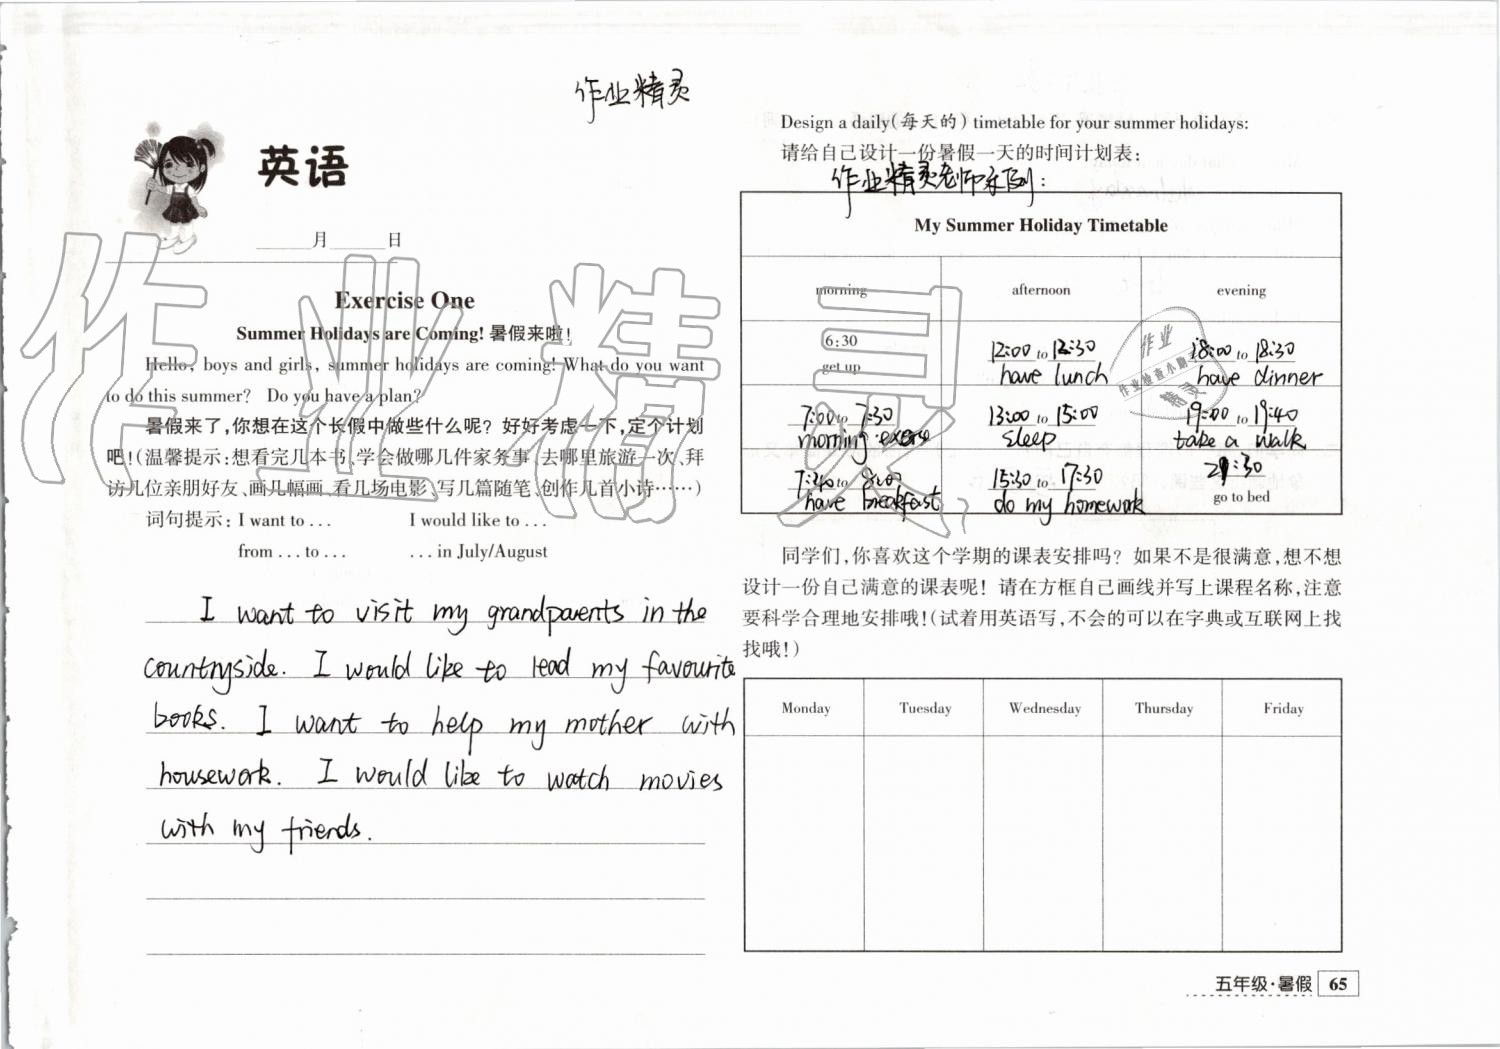 作业精灵
英语
月 日
Exercise One
Summer Holidays are Coming! 暑假来啦!
Hello, boys and girls, summer holidays are coming! What do you want
to do this summer? Do you have a plan?
暑假来了,你想在这个长假中做些什么呢?好好考虑一下,定个计划
吧!(温馨提示:想看完几本书、学会做哪几件家务事、去哪里旅游一次、拜
访几位亲朋好友、画几幅画、看几场电影、写几篇随笔、创作几首小诗……)
词句提示: I want to ... I would like to ...
from ... to ... ... in July/August
I want to visit my grandparents in the
countryside. I would like to read my favourite
books. I want to help my mother with
housework. I would like to watch movies
with my friends.
Design a daily(每天的) timetable for your summer holidays:
请给自己设计一份暑假一天的时间计划表:
作业精灵老师示例:
My Summer Holiday Timetable
morning afternoon evening
6:30 12:00 to 12:30 18:00 to 18:30
get up have lunch have dinner
7:00 to 7:30 13:00 to 15:00 19:00 to 19:40
morning sleep take a walk
7:40 to 8:00 15:30 to 17:30 21:30
have breakfast do my homework go to bed
同学们,你喜欢这个学期的课表安排吗?如果不是很满意,想不想
设计一份自己满意的课表呢!请在方框自己画线并写上课程名称,注意
要科学合理地安排哦!(试着用英语写,不会的可以在字典或互联网上找
找哦!)
Monday Tuesday Wednesday Thursday Friday
五年级·暑假 65
作业精灵
作业
作业检查小助手
精灵